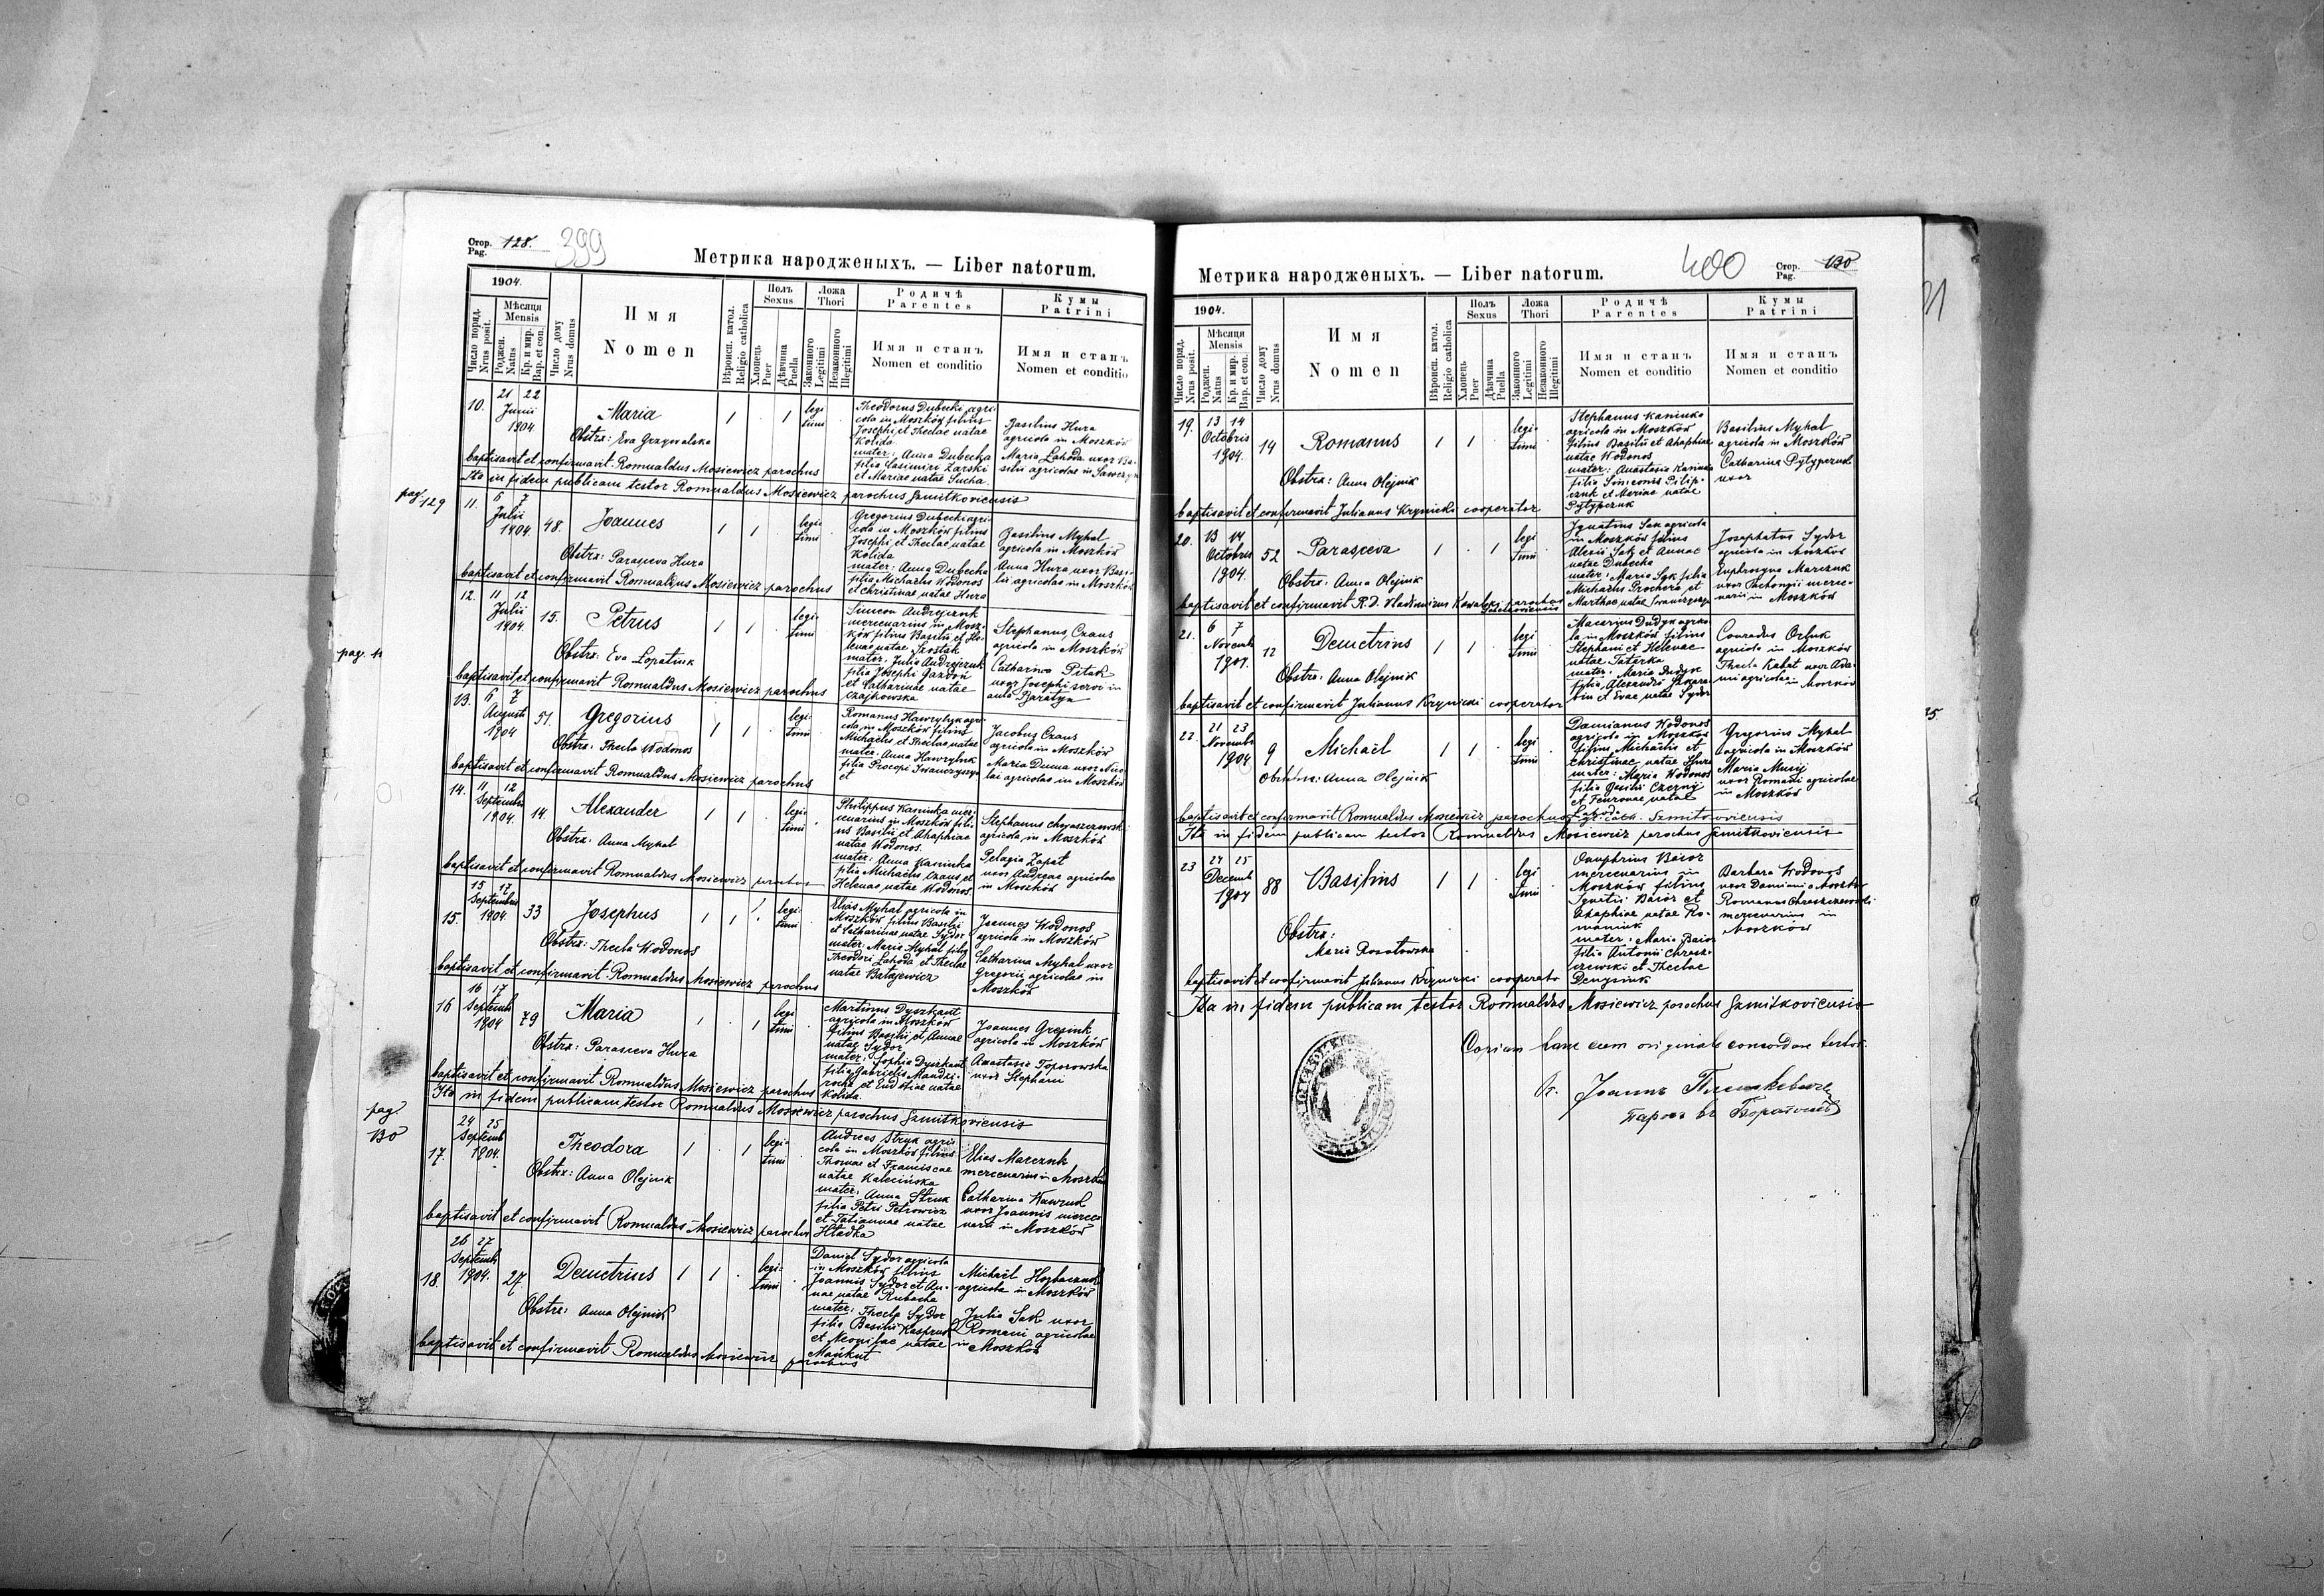 Стор. 128.
Pag.
399
Метрика народженыхъ. — Liber natorum.
1904.
Число поряд.
Nrus posit.
Мѣсяця
Mensis
Роджен.
Natus
Кр. и мир.
Bap. et con.
Число дому
Nrus domus
Имя
Nomen
Вѣроисп. катол.
Religio catholica
Полъ
Sexus
Хлопець
Puer
Дѣвчина
Puella
Ложа
Thori
Законного
Legitimi
Незаконного
Illegitimi
Родичѣ
Parentes
Имя и станъ
Nomen et conditio
Кумы
Patrini
Имя и станъ
Nomen et conditio
10.
21 22
Junii
1904
Maria
Obstrx: Eva Grzywalska
1 1
legi
timi
Theodorus Dubecki agri-
cola in Moszków filius
Josephi et Theclae natae
Kolida
mater: Anna Dubecka
filia Casimiri Zarski
et Mariae natae Sucha
Basilius Hura
agricola in Moszków
Maria Lahoda uxor Ba-
silii agricolae in
baptisavit et confirmavit Romualdus Mosiewicz parochus
Ita in fidem publicam testor Romualdus Mosiewicz parochus Szmitkoviensis
pag. 129
11.
6 7
Julii
1904.
48.
Joannes
Obstrx: Parasceva Hura
1 1
legi-
timi
Gregorius Dubecki agri-
cola in Moszków filius
Josephi et Theclae natae
Kolida
mater: Anna Dubecka
filia Michaelis Wodonos
et Christinae natae Hura
Basilius Myhal
agricola in Moszków
Anna Hura uxor Basi-
lii agricolae in Moszków
baptisavit et confirmavit Romualdus Mosiewicz parochus
12.
11 12
Julii
1904.
15.
Petrus
Obstrx: Eva Lopatiuk
1 1
legi-
timi
Simeon Andrejczuk
mercenarius in Mosz-
ków filius Basilii et He-
lenae natae
mater: Julia Andrejczuk
filia Josephi Gazdoń
et Catharinae natae
Czajkowska
Stephanus Czaus
agricola in Moszków
Catharina Pitak
uxor Josephi servi in
aula Baratyn
pag. 11
baptisavit et confirmavit Romualdus Mosiewicz parochus
13.
6 7
Augusti
1904
51.
Gregorius
Obstrx: Thecla Wodonos
1 1
legi-
timi
Romanus Hawryłyk agri-
cola in Moszków filius
Michaelis et Theclae natae
mater: Anna Hawryłyk
filia Procopi Iwanczyszyn
et
Jacobus Czaus
agricola in Moszków
Maria Duma uxor Nico-
lai agricolae in Moszków
baptisavit et confirmavit Romualdus Mosiewicz parochus
14.
11 12
Septembr
1904.
14.
Alexander
Obstrx: Anna Myhal
1 1
legi-
timi
Philippus Kaminka mer-
cenarius in Moszków fili-
us Basilii et Ahaphiae
natae Wodonos.
mater: Anna Kaminka
filia Michaelis Czaus et
Helenae natae Wodonos
Stephanus Chwaszczewski
agricola in Moszków
Pelagia Zapat
uxor Andreae agricolae
in Moszków
baptisavit et confirmavit Romualdus Mosiewicz parochus
15.
15 17
Septembris
1904.
33
Josephus
Obstrx: Thecla Wodonos
1 1
legi-
timi
Elias Myhal agricola in
Moszków filius Basilii
et Catharinae natae Sydor
mater: Maria Myhal filia
Theodori Lahoda et Theclae
natae
Joannes Wodonos
agricola in Moszków
Catharina Myhal uxor
Gregorii agricolae in
Moszków
baptisavit et confirmavit Romualdus Mosiewicz parochus
16
16 17
Septemb
1904
79
Maria
Obstrx: Parasceva Hura
1 1
legi
timi
Martinus Dyszkant
agricola in Moszków
filius Basilii et Annae
natae Sydor
mater: Sophia Dyszkant
filia Gabrielis Mandzi-
rocha et Eudoxiae natae
Kolida.
Joannes Gresiuk
agricola in Moszków
Anastasia Toporowska
uxor Stephani
baptisavit et confirmavit Romualdus Mosiewicz parochus
Ita in fidem publicam testor Romualdus Mosiewicz parochus Szmitkoviensis
pag
130
17.
24 25
Septemb
1904.
Theodora
Obstrx: Anna Olejnik
1 1
legi-
timi
Andreas Struk agri-
cola in Moszków filius
Thomae et Franciscae
natae Kalecińska
mater: Anna Struk
filia Petri Petrowicz
et Tatiannae natae
Hładka
Elias Marczuk
mercenarius in Moszków
Catharina
uxor Joannis merce-
narii in Moszków
baptisavit et confirmavit Romualdus Mosiewicz parochus
18.
26 27
Septemb
1904.
27
Demetrius
Obstrx: Anna Olejnik
1 1
legi-
timi
Daniel Sydor agricola
in Moszków filius
Joannis Sydor et An-
nae natae Rubacha
mater: Thecla Sydor
filia Basilii Kasprus
et Meonilae natae
Maukut
Michael Horbaczuk
agricola in Moszków
Julia Sak uxor
Romani agricolae
in Moszków
baptisavit et confirmavit Romualdus Mosiewicz parochus
Метрика народженыхъ. — Liber natorum.
400
Стор. 130
Pag.
1904.
Число поряд.
Nrus posit.
Мѣсяця
Mensis
Роджен.
Natus
Кр. и мир.
Bap. et con.
Число дому
Nrus domus
Имя
Nomen
Вѣроисп. катол.
Religio catholica
Полъ
Sexus
Хлопець
Puer
Дѣвчина
Puella
Ложа
Thori
Законного
Legitimi
Незаконного
Illegitimi
Родичѣ
Parentes
Имя и станъ
Nomen et conditio
Кумы
Patrini
Имя и станъ
Nomen et conditio
19.
13 14
Octobris
1904.
14
Romanus
Obstrx: Anna Olejnik
1 1
legi-
timi
Stephanus Kaminka
agricola in Moszków
filius Basilii et Ahaphiae
natae Wodonos
mater: Anastasia Kaminka
filia Simeonis Pilip-
czuk et Mariae natae
Pyłypczuk
Basilius Myhal
agricola in Moszków
Catharina Pyłypczuk
uxor
baptisavit et confirmavit Julianus Krynicki cooperator
20.
13 14
Octobris
1904.
52
Parasceva
Obstrx: Anna Olejnik
1 1
legi
timi
Ignatius Sak agricola
in Moszków filius
Alexii Sak et Annae
natae Dubecka
mater: Maria Sak filia
Michaelis Prochora et
Marthae natae Iwanczyszyn
Josephatus Sydor
agricola in Moszków
Euphrosyna Marczuk
uxor Pachomii merce-
narii in Moszków
baptisavit et confirmavit R. D. Vladimirus Kowalski parochus
21.
6 7
Novemb
1904.
12
Demetrius
Obstrx: Anna Olejnik
1 1
legi
timi
Macarius Dudyk agrico-
la in Moszków filius
Stephani et Helenae
natae Tatarka
mater: Maria Dudyk
filia Alexandri
et Evae natae Sydor
Conradus Orluk
agricola in Moszków
Thecla Kabat uxor Ada-
mi agricolae in Moszków
baptisavit et confirmavit Julianus Krynicki cooperator
22.
21 23
Novembr
1904
9
Michael
Obstrx: Anna Olejnik
1 1
legi
timi
Damianus Wodonos
agricola in Moszków
filius Michaelis et
Christinae natae Hura
mater: Maria Wodonos
filia Basilii Czerny
et Fevroniae natae
Gregorius Myhal
agricola in Moszków
Maria Musij
uxor Romani agricolae
in Moszków
baptisavit et confirmavit Romualdus Mosiewicz parochus gr. cath. Szmitkoviensis
Ita in fidem publicam testor Romualdus Mosiewicz parochus Szmitkoviensis
23
24 25
Decemb
1904
88
Basilius
Obstrx:
Maria Rosotowska
1 1
legi
timi
Onuphrius Baior
mercenarius in
Moszków filius
Ignatii Baior et
Ahaphiae natae Ro-
maniuk
mater: Maria Baior
filia Antonii Chrasz-
czewski et Theclae
Denysiuk
Barbara Wodonos
uxor Damiani a Moszków
Romanus Chraszczewski
mercenarius in
Moszków
baptisavit et confirmavit Julianus Krynicki cooperator
Ita in fidem publicam testor Romualdus Mosiewicz parochus Szmitkoviensis
Copiam hanc cum originale concordare testor.